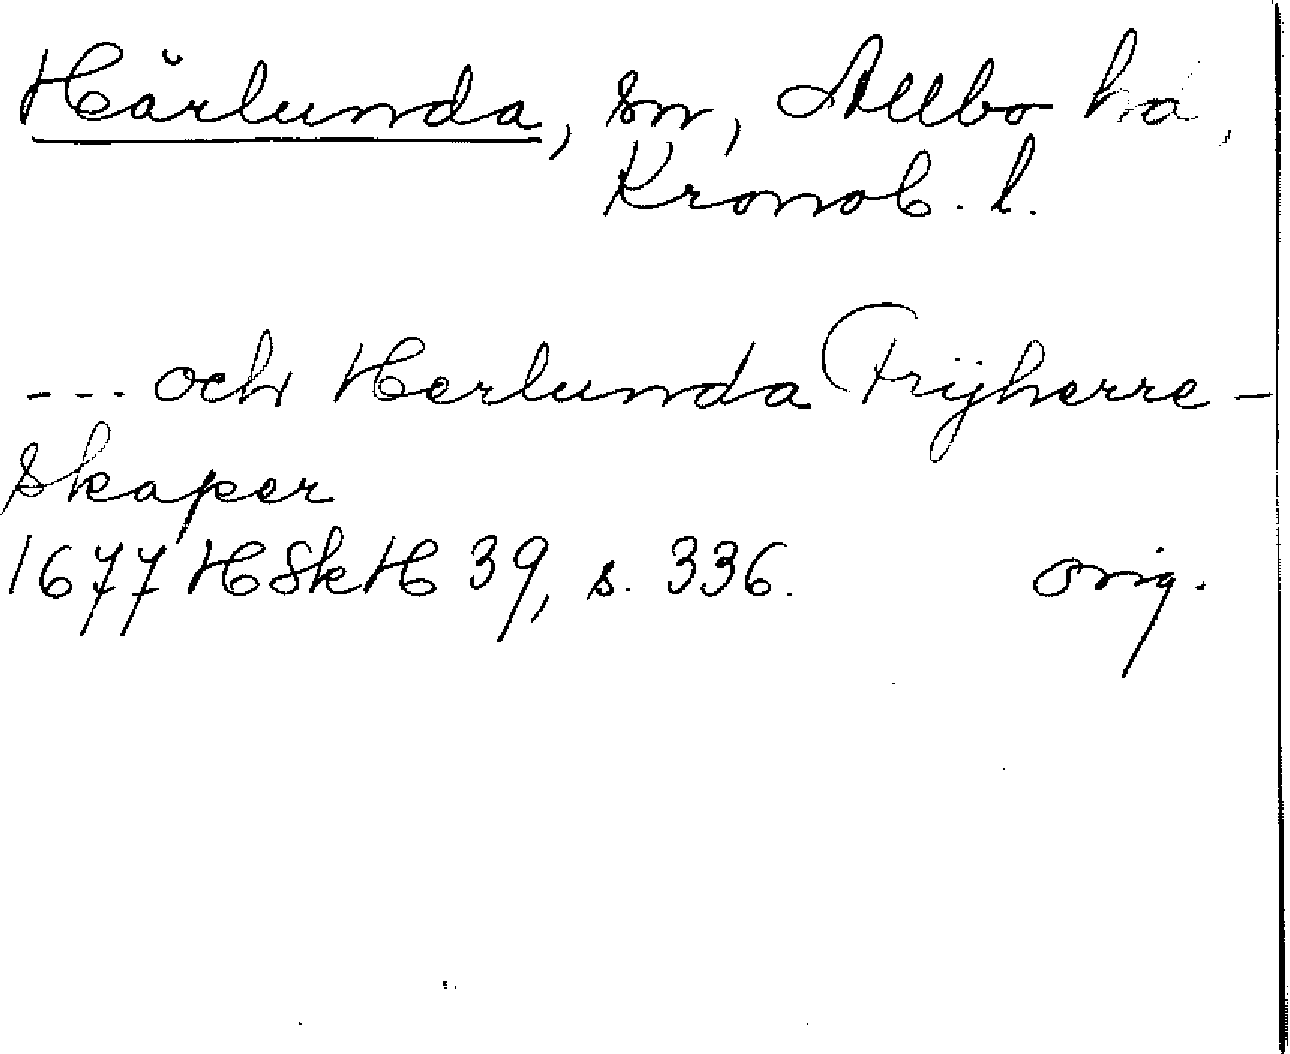 Härlunda, sn, Allbo hd,
Kronob. l.
--- och Herlunda Frijherre-
skaper
1677 HSkH 39, s. 336. orig.